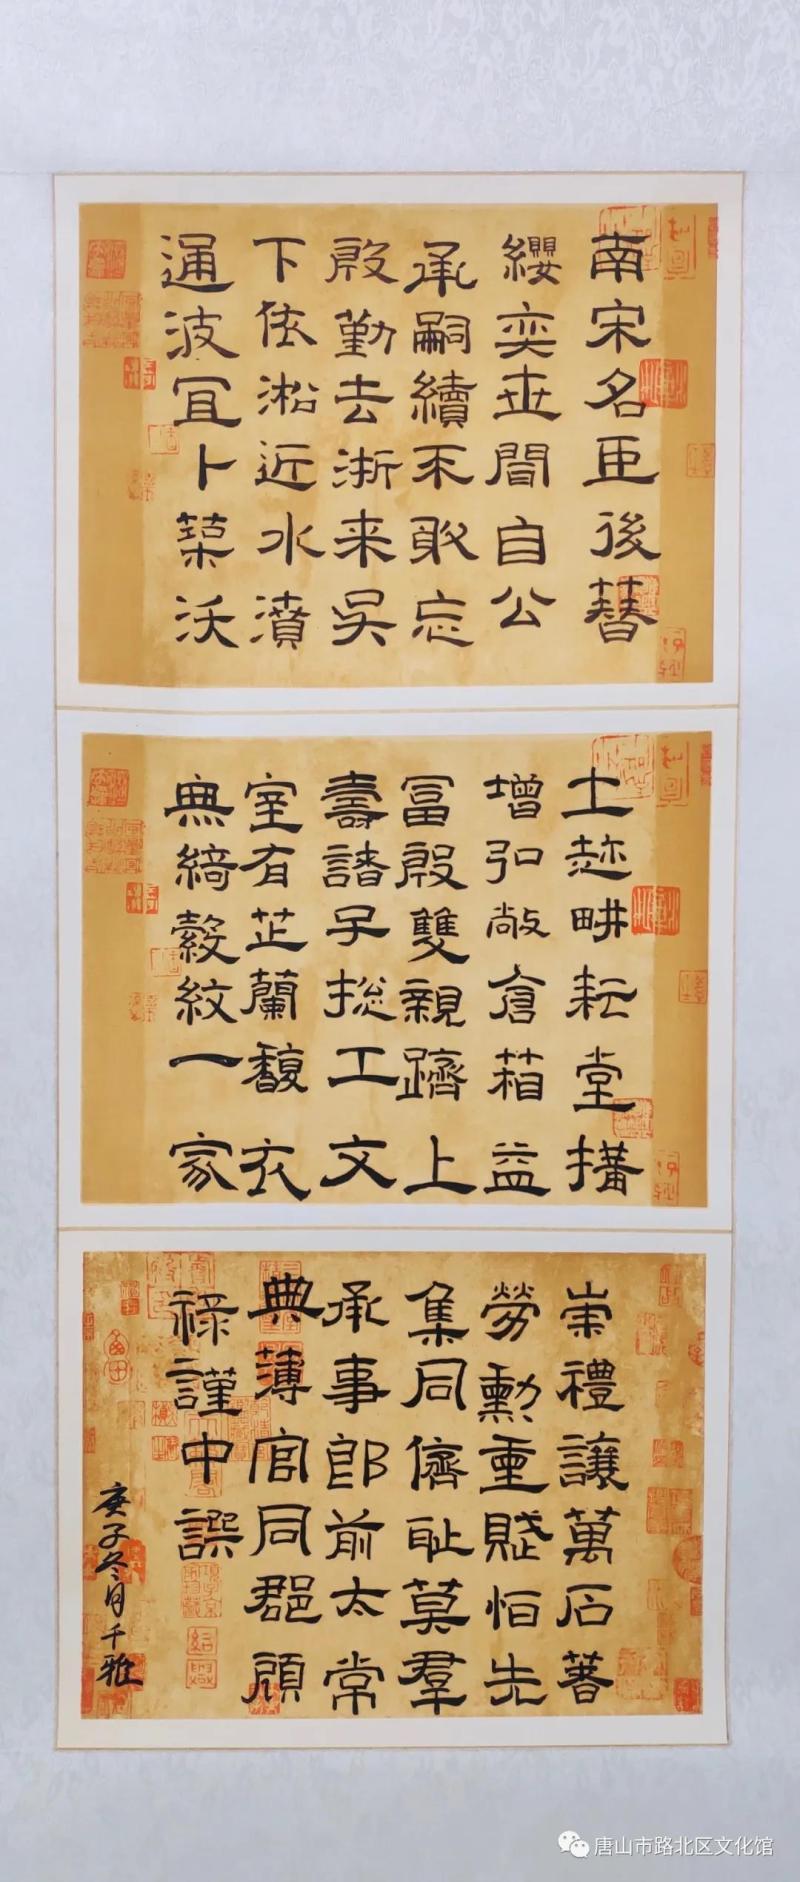 南宋名臣後簪
纓奕世聞自公
承嗣續不敢忘
殷勤去浙来吴
下依淞近水濆
通波宜卜築沃
土趁畊耘堂構
增弘敞倉箱益
富殷雙親躋上
壽諸子捴工文
室有芷蘭馥衣
無綺縠紋一家
崇禮讓萬石著
勞勳重賦怕先
集同儕耻莫羣
承事郎前太常
典薄官同郡顧
祿謹中譔
庚子冬月千雅
唐山市路北区文化馆